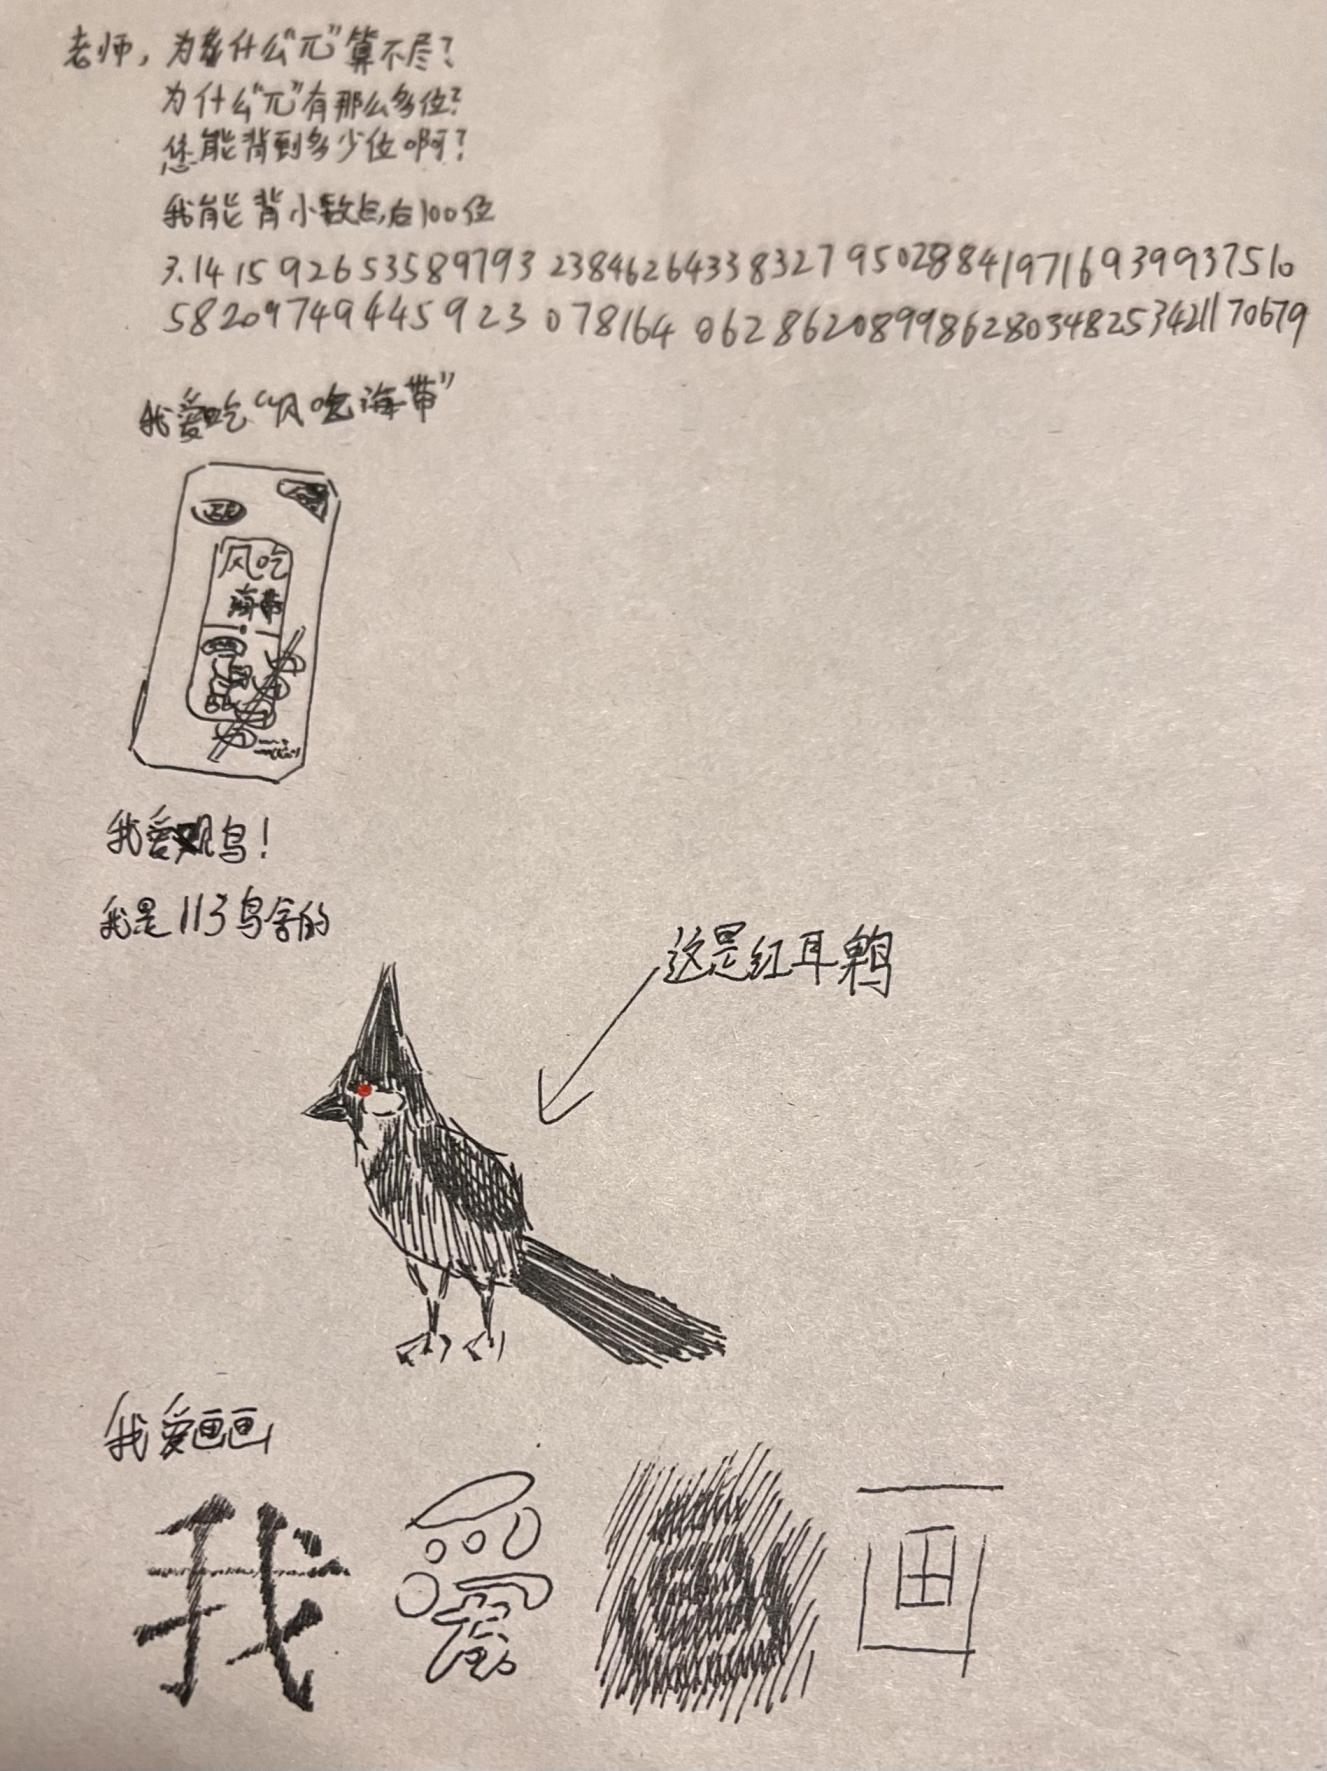 老师，为什么“π”算不尽？
为什么“π”有那么多位？
您能背到多少位啊？
我能背小数点后100位
3.14159265358979323846264338327950288419716939937510
58209749445923078164062862089986280348253421170679
我爱吃“风吃海带”
风吃
海带
我爱观鸟！
我是113鸟舍的
这是红耳鹎
我爱画画
我爱画画